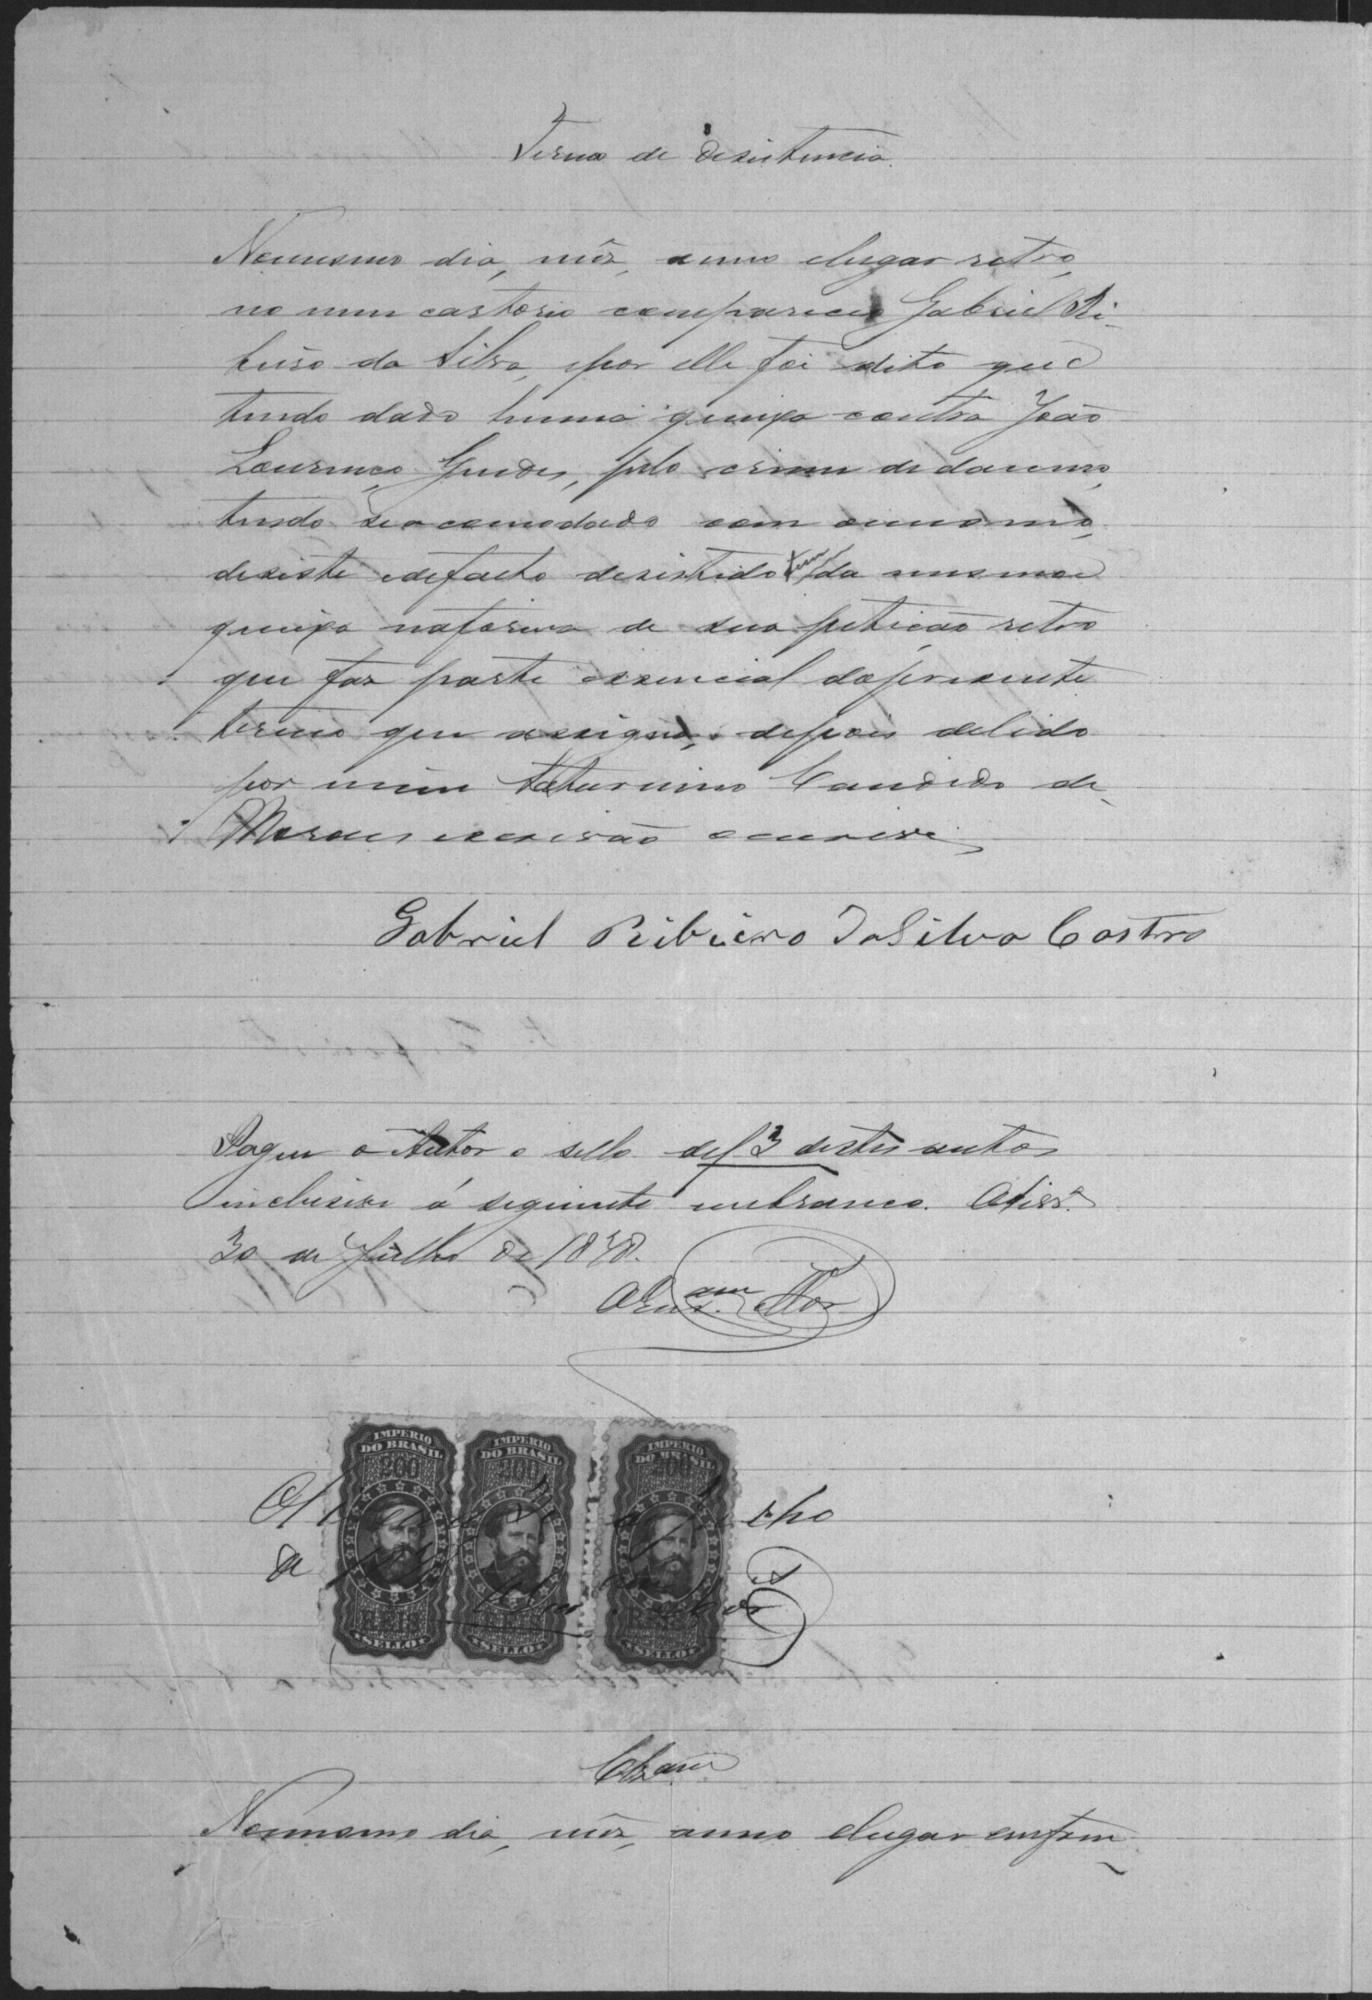 Termo de desistencia.
Nomesmo dia, mês, anno elugar retro,
no meu cartorio compareceu Gabriel Ri-
beiro da Silva, epor elle foi dito que
tendo dado huma queixa contra João
Lourenço Guedes, pelo crime dedamno,
tendo seacomodado com omesmo,
desiste edefacto desistido tem da mesma
queixa naforma de sua petição retro
que faz parte essencial dopresente
termo que assigna, depois delido
por mim Saturnino Candido de
Moraes escrivão oescrevi
Gabriel Ribieiro DaSilva Castro
Pague o Autor o sello de f 3 destes autos
inclusive a seguinte embranco.
30 de Julho de 1878.
IMPERIO DO BRASIL 200 REIS SELLO
IMPERIO DO BRASIL 200 REIS SELLO
IMPERIO DO BRASIL 200 REIS SELLO
Clzam
Nomesmo dia, mês, anno elugar